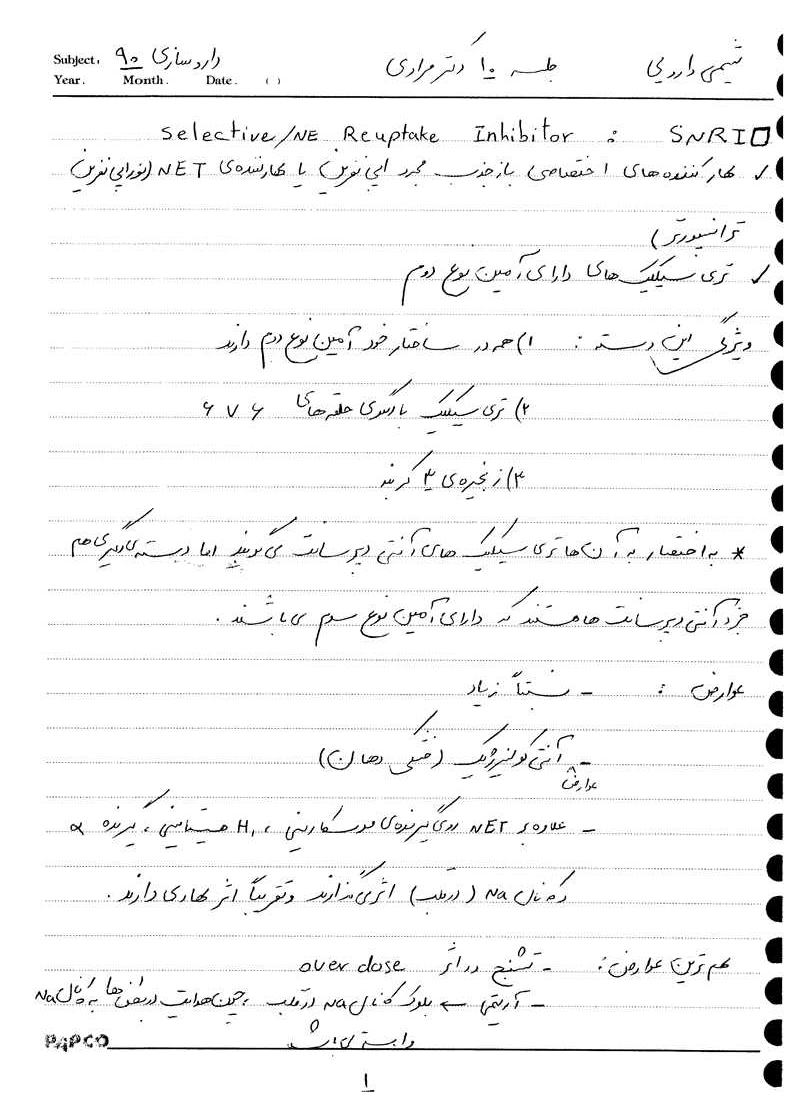 شیمی دارویی جلسه ۱۰ دکتر مرادی داروسازی ۹۰ Subject:
Year. Month. Date. ( )
□ SNRI : Selective/NE Reuptake Inhibitor
✓ مهارکننده‌های اختصاصی بازجذب مجدد اپی نفرین یا مهارکننده‌ی NET (نوراپی نفرین
ترانسپورتر)
✓ تری سیکلیک های دارای آمین نوع دوم
ویژگی این دسته : ۱) همه در ساختار خود آمین نوع دوم دارند
۲) تری سیکلیک با الگوی حلقه های ۶ ۷ ۶
۳) زنجیره‌ی ۳ کربنه
* به اختصار به آن ها تری سیکلیک های آنتی دپرسانت می گویند اما دسته ی دیگری هم
جزء آنتی دپرسانت ها هستند که دارای آمین نوع سوم می باشند .
عوارض : - نسبتاً زیاد
- عوارض آنتی کولینرژیک (خشکی دهان)
- علاوه بر NET روی گیرنده‌ی موسکارینی ، H₁ هیستامینی ، گیرنده α
و کانال Na (در قلب) اثر می گذارند و تقریباً اثر مهاری دارند .
مهم ترین عوارض : - تشنج در اثر over dose
- آریتمی ← بلوک کانال Na در قلب ، چون هدایت در بطن ها به کانال Na
وابسته می باشد
PAPCO
۱